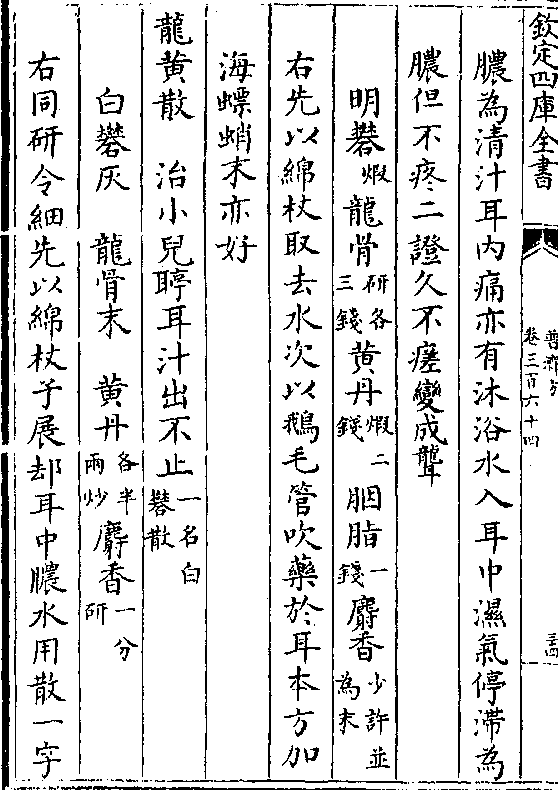 欽定四庫全書
普濟方
卷三百六十四
膿為清汁耳内痛亦有沐浴水入耳中濕氣停滯為
膿但不疼二證久不瘥變成聾
明礬煆龍骨研各三錢黄丹煆二錢胭脂一錢麝香少許並為末
右先以綿杖取去水次以鵝毛管吹藥於耳本方加
海螵蛸末亦好
龍黄散 治小兒聤耳汁出不止一名白礬散
白礬灰 龍骨末 黄丹各半兩炒麝香一分研
右同研令細先以綿杖子展却耳中膿水用散一字